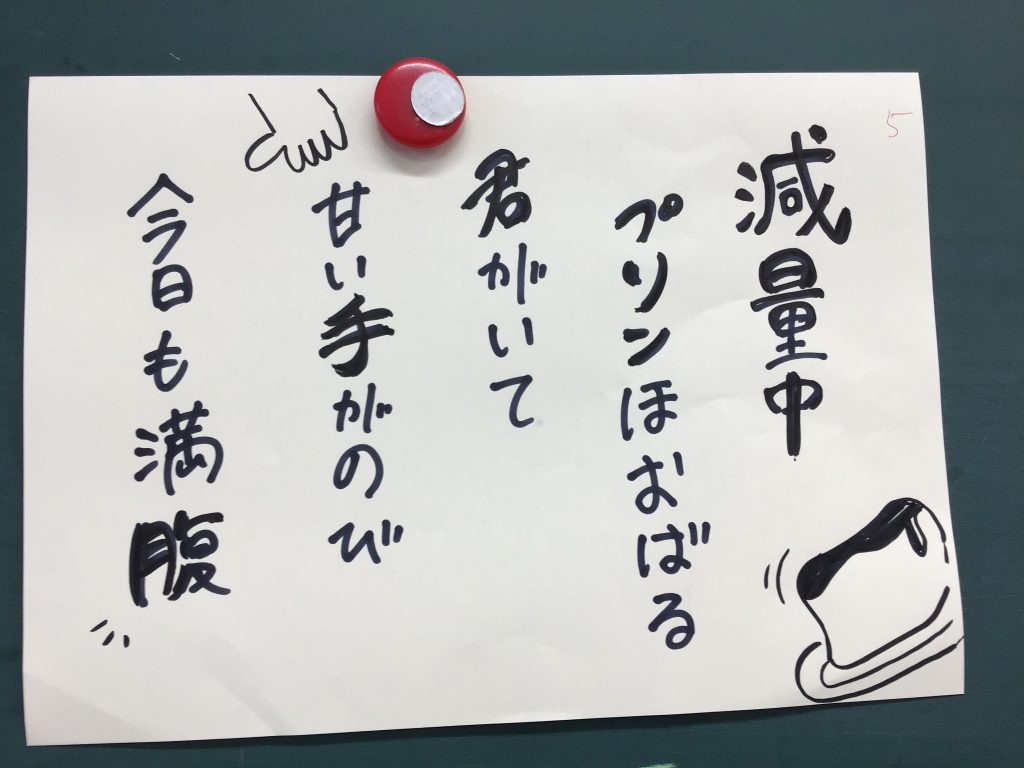 5
減量中
プリンほおばる
君がいて
甘い手がのび
今日も満腹